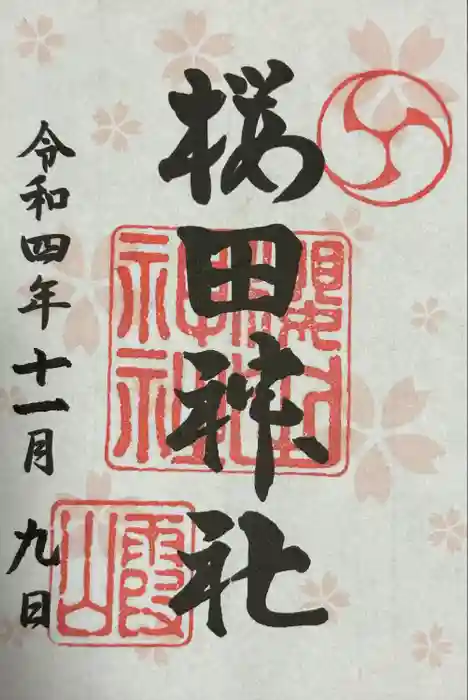 桜田神社
令和四年十一月九日
櫻田神社
霞山